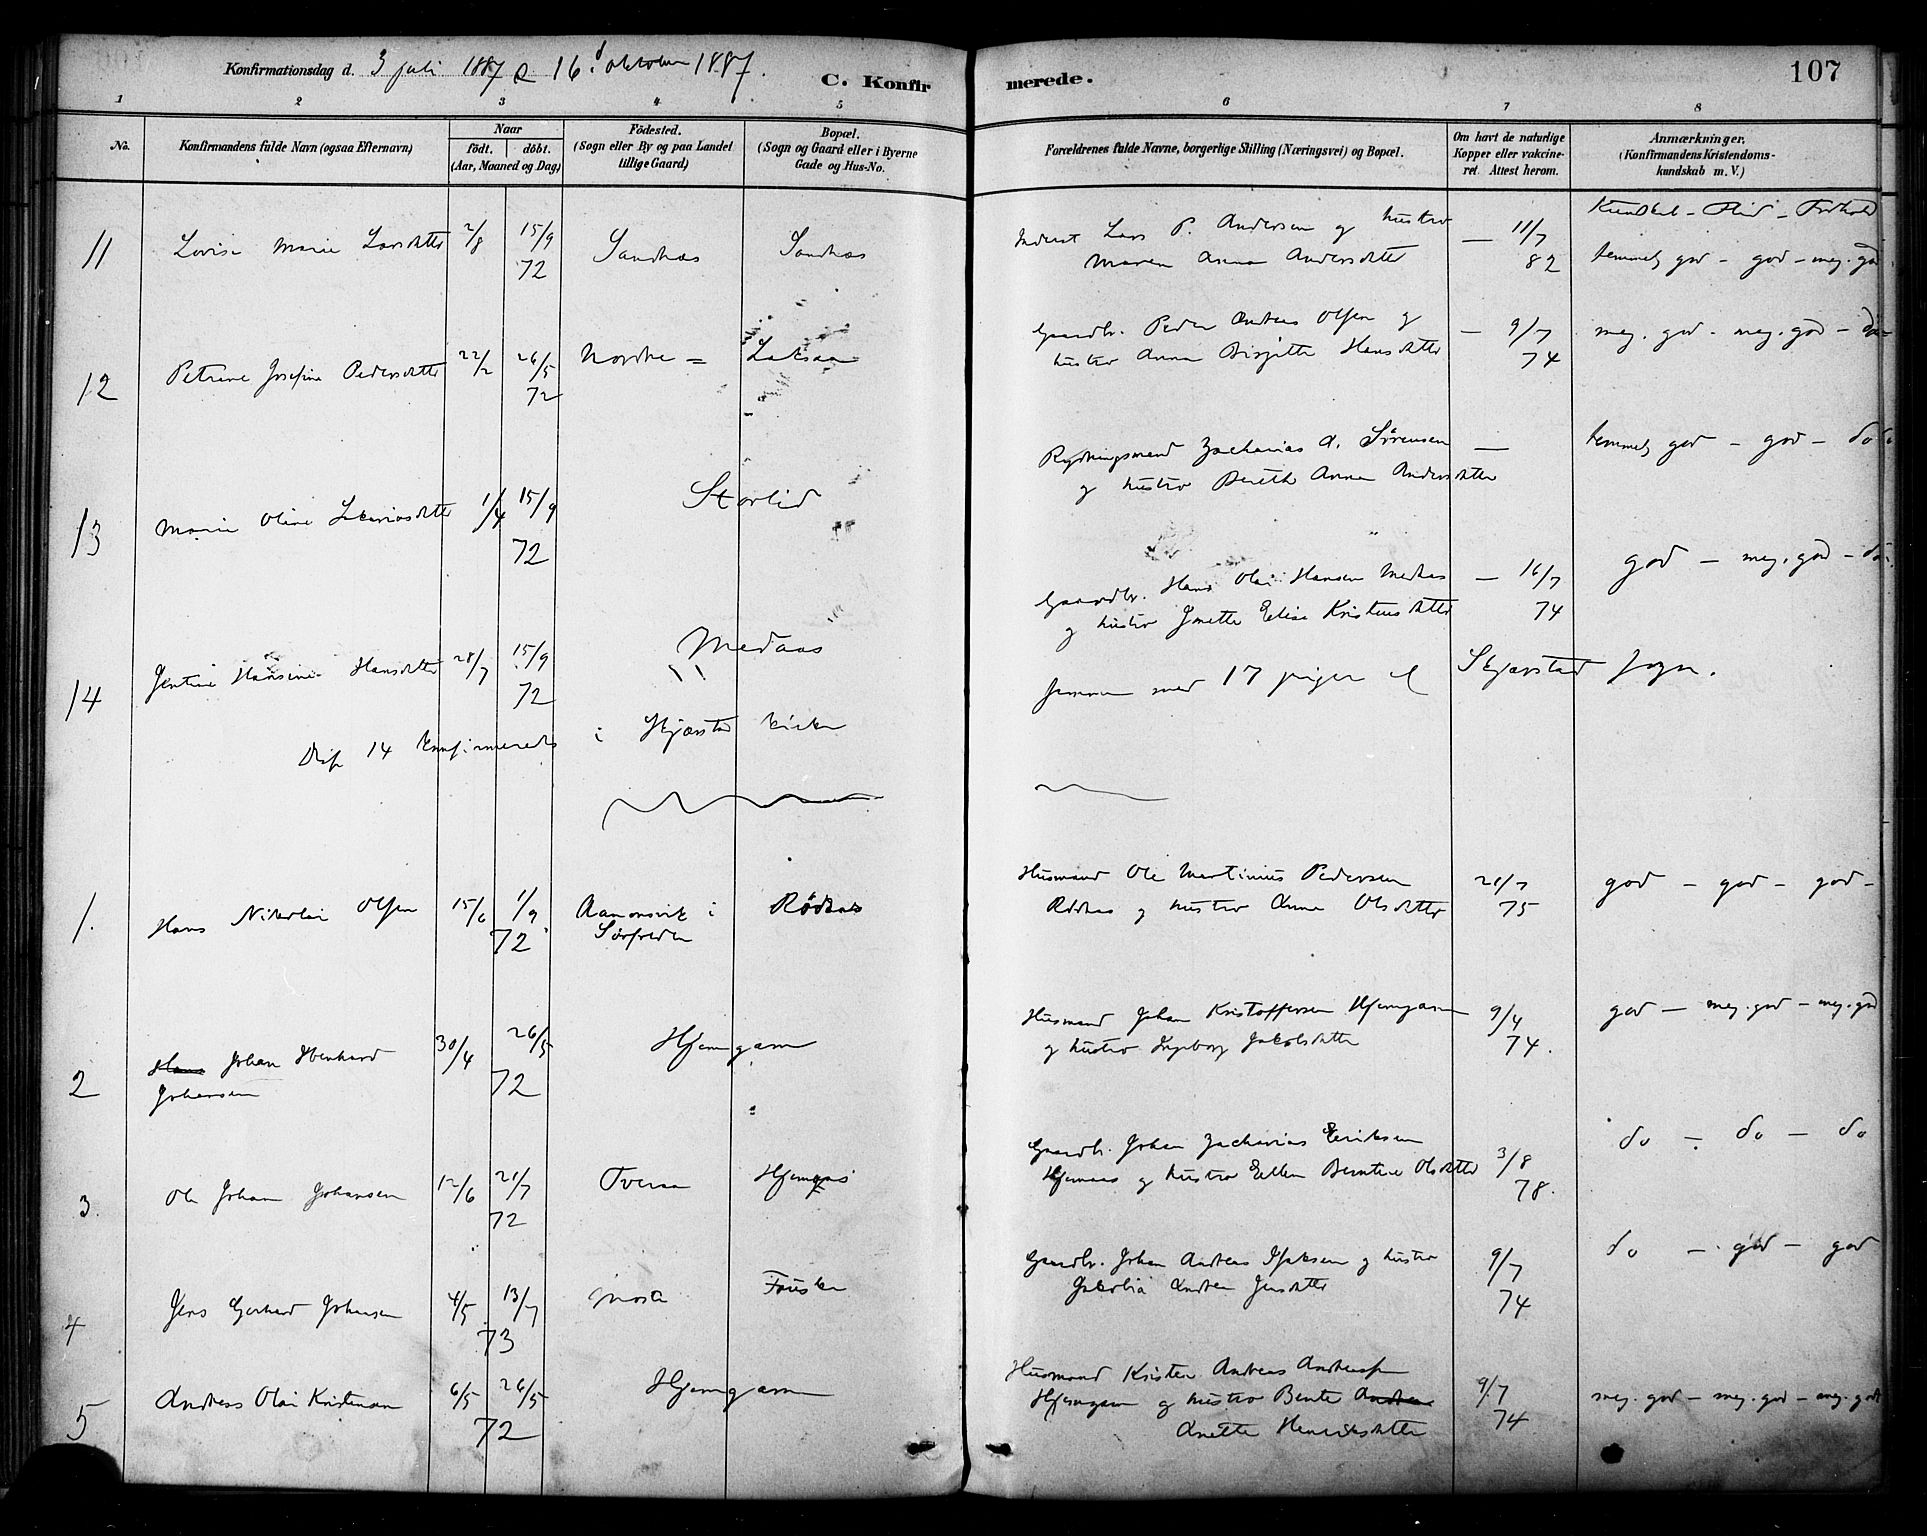 Konfirmationsdag d. 3 juli 1887 & 16d oktober 1887.
C. Konfirmerede.
107
1 2 3 4 5 6 7 8
No.
Konfirmandens fulde Navn (ogsaa Efternavn)
Naar
født. døbt.
(Aar, Maaned og Dag)
Fødested.
(Sogn eller By og paa Landet
tillige Gaard)
Bopæl.
(Sogn og Gaard eller i Byerne
Gade og Hus-No.
Forældrenes fulde Navne, borgerlige Stilling (Næringsvei) og Bopæl.
Om havt de naturlige
Kopper eller vakcine-
ret. Attest herom.
Anmærkninger.
(Konfirmandens Kristendoms-
kundskab m. V.)
Kundskab - Flid - Forhold
11 Lovise Marie Larsdatter 2/8 15/9 72 Sandnæs Sandnæs
Inderst Lars P. Andersen og hustro
Maren Anna Andersdatter
— 11/7 82
temmelig god - god - meg. god
12 Petrine Josefine Pedersdatter 22/2 26/5 72 Nordre = Laksaa
Gaardbr. Peder Andreas Olsen og
hustro Anna Birgitte Hansdatter
— 9/7 74
meg. god - meg. god - do
13 Marie Oline Zakariasdatter 1/4 15/9 72 Storlid
Rydningsmand Zacharias A. Sørensen
og hustro Bereth Anna Andersdatter
—
temmelig god - god - do
14 Jentine Hansine Hansdatter 28/7 15/9 72 Medaas
Gaardbr. Hans Olai Hansen Medaas
og hustro Jonette Elise Kristensdatter
— 16/7 74
god - meg. god - do
Disse 14 konfirmeredes i Skjærstad kirke
sammen med 17 piger af Skjærstad sogn.
1. Hans Nikolai Olsen 15/6 1/9 72 Aamonsvik i
Sørfolden
Rødaas
Husmand Ole Martinius Pedersen
Rødaas og hustro Anna Olsdatter
21/7 75
god - god - god -
2 Hans Johan Henhard
Johansen
30/4 26/5 72 Hjemgam
Husmand Johan Kristoffersen Hjemgam
og hustro Ingeborg Jakobsdatter
9/4 74.
god - meg. god - meg. god
3 Ole Johan Johansen 12/6 21/7 72 Tveraa Hjemaas
Gaardbr. Johan Zacharias Eriksen
Hjemaas og hustro Ellen Berntine Olsdatter
3/8 78.
do - do - do
4 Jens Gerhard Johansen 4/5 13/7 73 Fauske
Gaardbr. Johan Andreas Isaksen og hustro
Jakobia Andrea Jensdatter
9/7 74
do - god - god
5 Andreas Olai Kristensen 6/5 26/5 72 Hjemgam
Husmand Kristen Andreas Andreassen
Hjemgam og hustro Bente Andrea
Anette Henriksdatter
9/7 74
meg. god - meg. god - meg. god